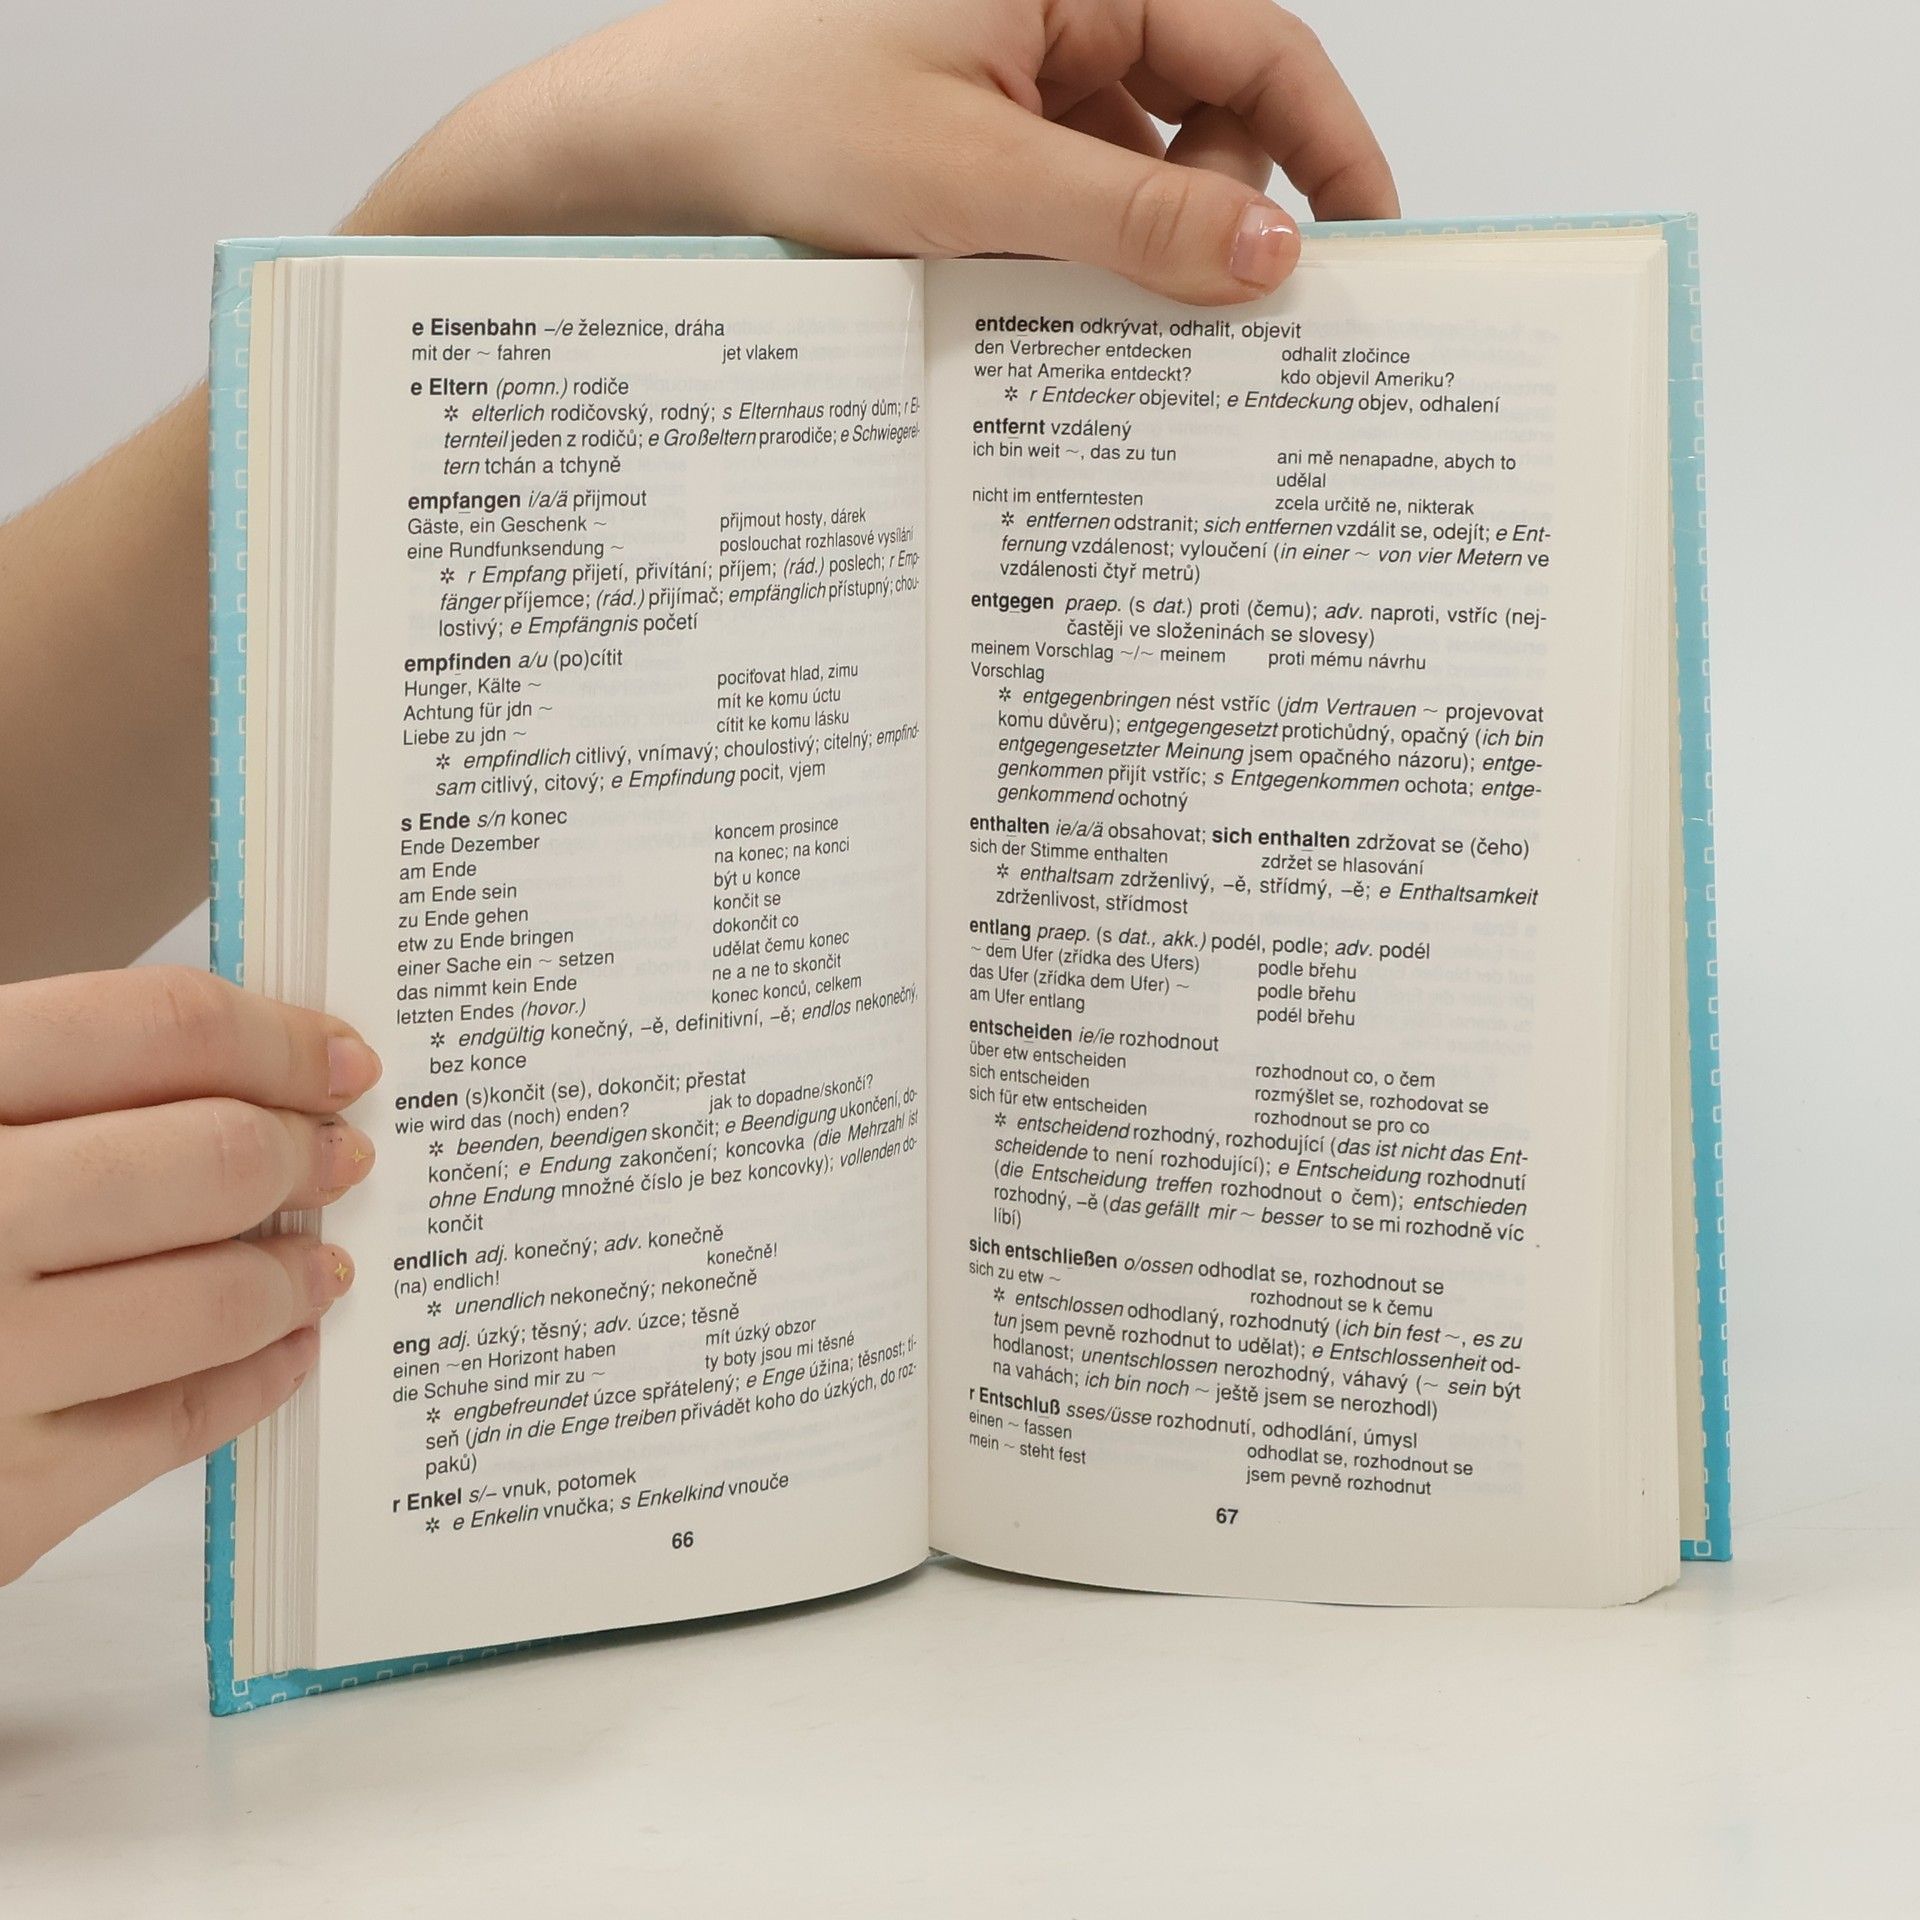 e Eisenbahn –/e železnice, dráha
mit der ~ fahren jet vlakem
e Eltern (pomn.) rodiče
✲ elterlich rodičovský, rodný; s Elternhaus rodný dům; r El-
ternteil jeden z rodičů; e Großeltern prarodiče; e Schwiegerel-
tern tchán a tchyně
empfangen i/a/ä přijmout
Gäste, ein Geschenk ~ přijmout hosty, dárek
eine Rundfunksendung ~ poslouchat rozhlasové vysílání
✲ r Empfang přijetí, přivítání; příjem; (rád.) poslech; r Emp-
fänger příjemce; (rád.) přijímač; empfänglich přístupný; chou-
lostivý; e Empfängnis početí
empfinden a/u (po)cítit
Hunger, Kälte ~ pociťovat hlad, zimu
Achtung für jdn ~ mít ke komu úctu
Liebe zu jdn ~ cítit ke komu lásku
✲ empfindlich citlivý, vnímavý; choulostivý; citelný; empfind-
sam citlivý, citový; e Empfindung pocit, vjem
s Ende s/n konec
Ende Dezember koncem prosince
am Ende na konec; na konci
am Ende sein být u konce
zu Ende gehen končit se
etw zu Ende bringen dokončit co
einer Sache ein ~ setzen udělat čemu konec
das nimmt kein Ende ne a ne to skončit
letzten Endes (hovor.) konec konců, celkem
✲ endgültig konečný, –ě, definitivní, –ě; endlos nekonečný,
bez konce
enden (s)končit (se), dokončit; přestat
wie wird das (noch) enden? jak to dopadne/skončí?
✲ beenden, beendigen skončit; e Beendigung ukončení, do-
končení; e Endung zakončení; koncovka (die Mehrzahl ist
ohne Endung množné číslo je bez koncovky); vollenden do-
končit
endlich adj. konečný; adv. konečně
(na) endlich! konečně!
✲ unendlich nekonečný; nekonečně
eng adj. úzký; těsný; adv. úzce; těsně
einen ~en Horizont haben mít úzký obzor
die Schuhe sind mir zu ~ ty boty jsou mi těsné
✲ engbefreundet úzce spřátelený; e Enge úžina; těsnost; tí-
seň (jdn in die Enge treiben přivádět koho do úzkých, do roz-
paků)
r Enkel s/– vnuk, potomek
✲ e Enkelin vnučka; s Enkelkind vnouče
66
entdecken odkrývat, odhalit, objevit
den Verbrecher entdecken odhalit zločince
wer hat Amerika entdeckt? kdo objevil Ameriku?
✲ r Entdecker objevitel; e Entdeckung objev, odhalení
entfernt vzdálený
ich bin weit ~, das zu tun ani mě nenapadne, abych to
udělal
nicht im entferntesten zcela určitě ne, nikterak
✲ entfernen odstranit; sich entfernen vzdálit se, odejít; e Ent-
fernung vzdálenost; vyloučení (in einer ~ von vier Metern ve
vzdálenosti čtyř metrů)
entgegen praep. (s dat.) proti (čemu); adv. naproti, vstříc (nej-
častěji ve složeninách se slovesy)
meinem Vorschlag ~/~ meinem proti mému návrhu
Vorschlag
✲ entgegenbringen nést vstříc (jdm Vertrauen ~ projevovat
komu důvěru); entgegengesetzt protichůdný, opačný (ich bin
entgegengesetzter Meinung jsem opačného názoru); entge-
genkommen přijít vstříc; s Entgegenkommen ochota; entge-
genkommend ochotný
enthalten ie/a/ä obsahovat; sich enthalten zdržovat se (čeho)
sich der Stimme enthalten zdržet se hlasování
✲ enthaltsam zdrženlivý, –ě, střídmý, –ě; e Enthaltsamkeit
zdrženlivost, střídmost
entlang praep. (s dat., akk.) podél, podle; adv. podél
~ dem Ufer (zřídka des Ufers) podle břehu
das Ufer (zřídka dem Ufer) ~ podle břehu
am Ufer entlang podél břehu
entscheiden ie/ie rozhodnout
über etw entscheiden rozhodnout co, o čem
sich entscheiden rozmýšlet se, rozhodovat se
sich für etw entscheiden rozhodnout se pro co
✲ entscheidend rozhodný, rozhodující (das ist nicht das Ent-
scheidende to není rozhodující); e Entscheidung rozhodnutí
(die Entscheidung treffen rozhodnout o čem); entschieden
rozhodný, –ě (das gefällt mir ~ besser to se mi rozhodně víc
líbí)
sich entschließen o/ossen odhodlat se, rozhodnout se
sich zu etw ~ rozhodnout se k čemu
✲ entschlossen odhodlaný, rozhodnutý (ich bin fest ~, es zu
tun jsem pevně rozhodnut to udělat); e Entschlossenheit od-
hodlanost; unentschlossen nerozhodný, váhavý (~ sein být
na vahách; ich bin noch ~ ještě jsem se nerozhodl)
r Entschluß sses/üsse rozhodnutí, odhodlání, úmysl
einen ~ fassen odhodlat se, rozhodnout se
mein ~ steht fest jsem pevně rozhodnut
67